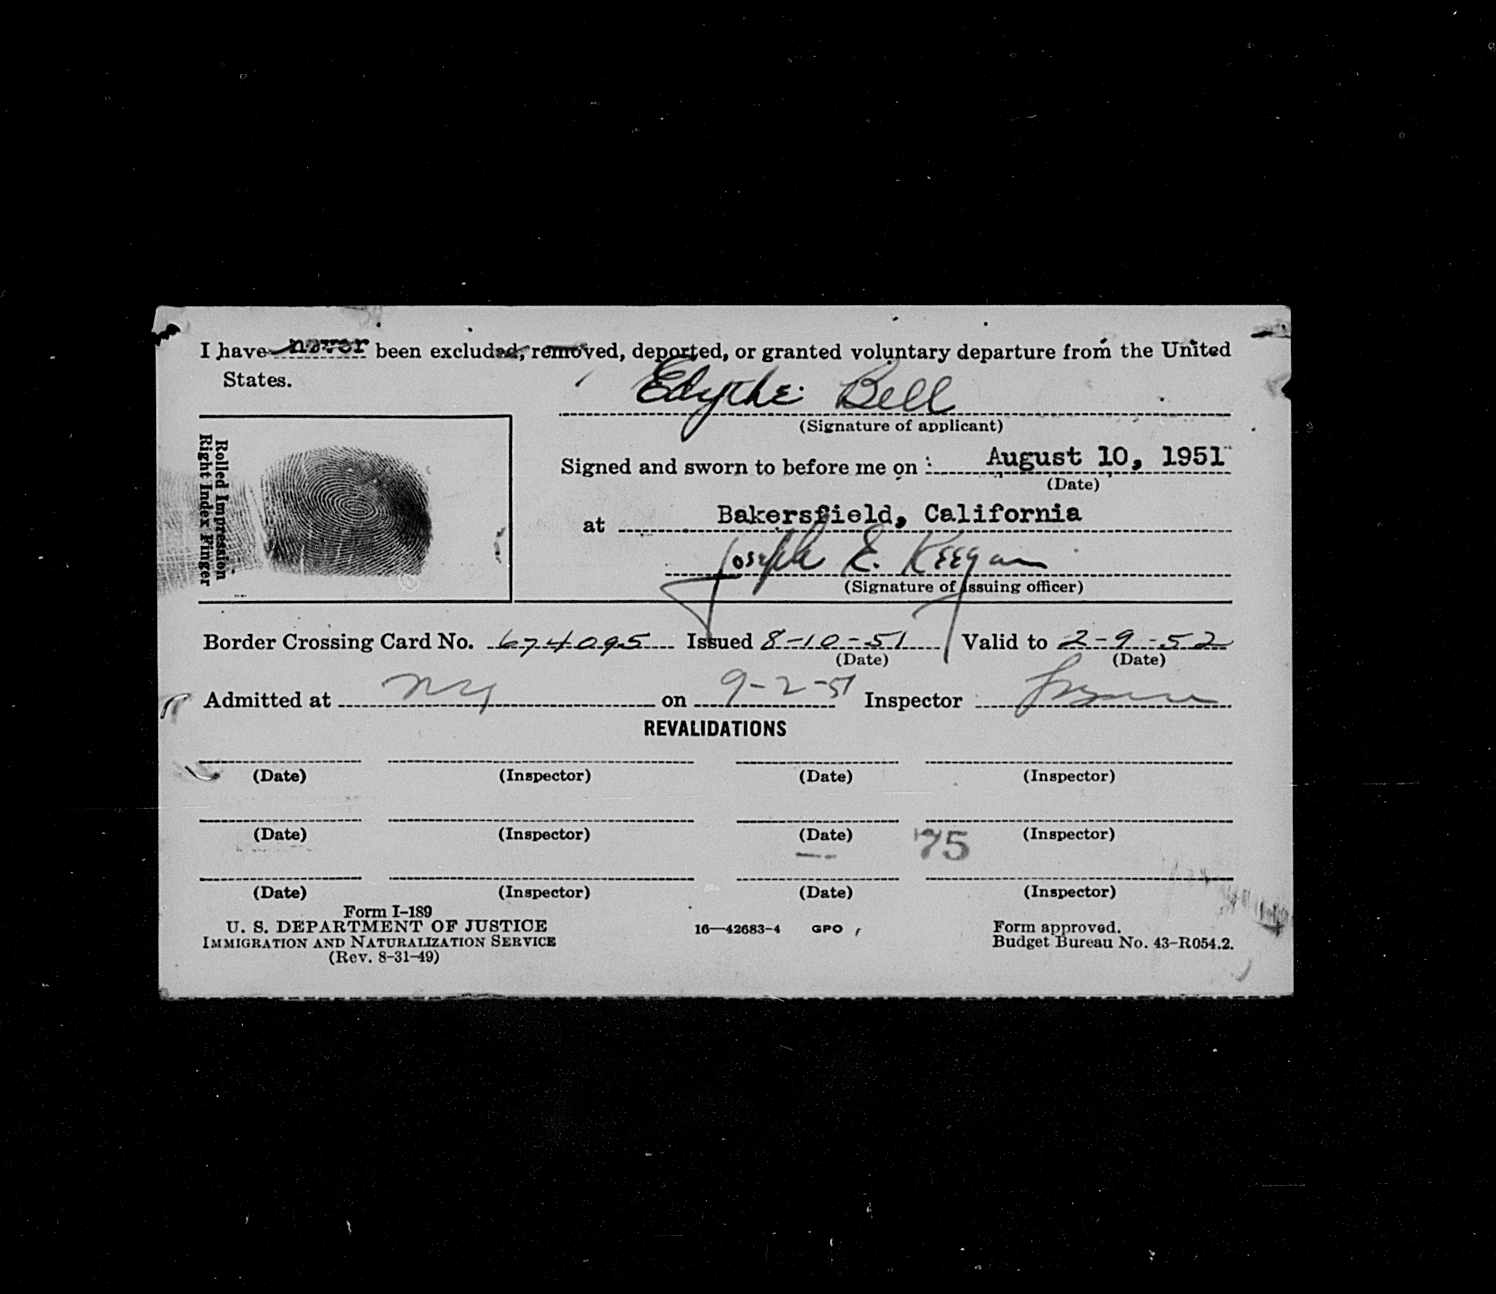 I have never been excluded, removed, deported, or granted voluntary departure from the United
States.
Edythe Bell
(Signature of applicant)
Rolled Impression
Right Index Finger
Signed and sworn to before me on August 10, 1951
(Date)
at Bakersfield, California
Joseph E. Keegan
(Signature of issuing officer)
Border Crossing Card No. 674095 Issued 8-10-51 Valid to 2-9-52
(Date) (Date)
Admitted at NY on 9-2-51 Inspector
REVALIDATIONS
(Date) (Inspector) (Date) (Inspector)
(Date) (Inspector) (Date) 75 (Inspector)
(Date) (Inspector) (Date) (Inspector)
Form I-189
U. S. DEPARTMENT OF JUSTICE
IMMIGRATION AND NATURALIZATION SERVICE
(Rev. 8-31-49)
16—42683-4 GPO
Form approved.
Budget Bureau No. 43-R054.2.